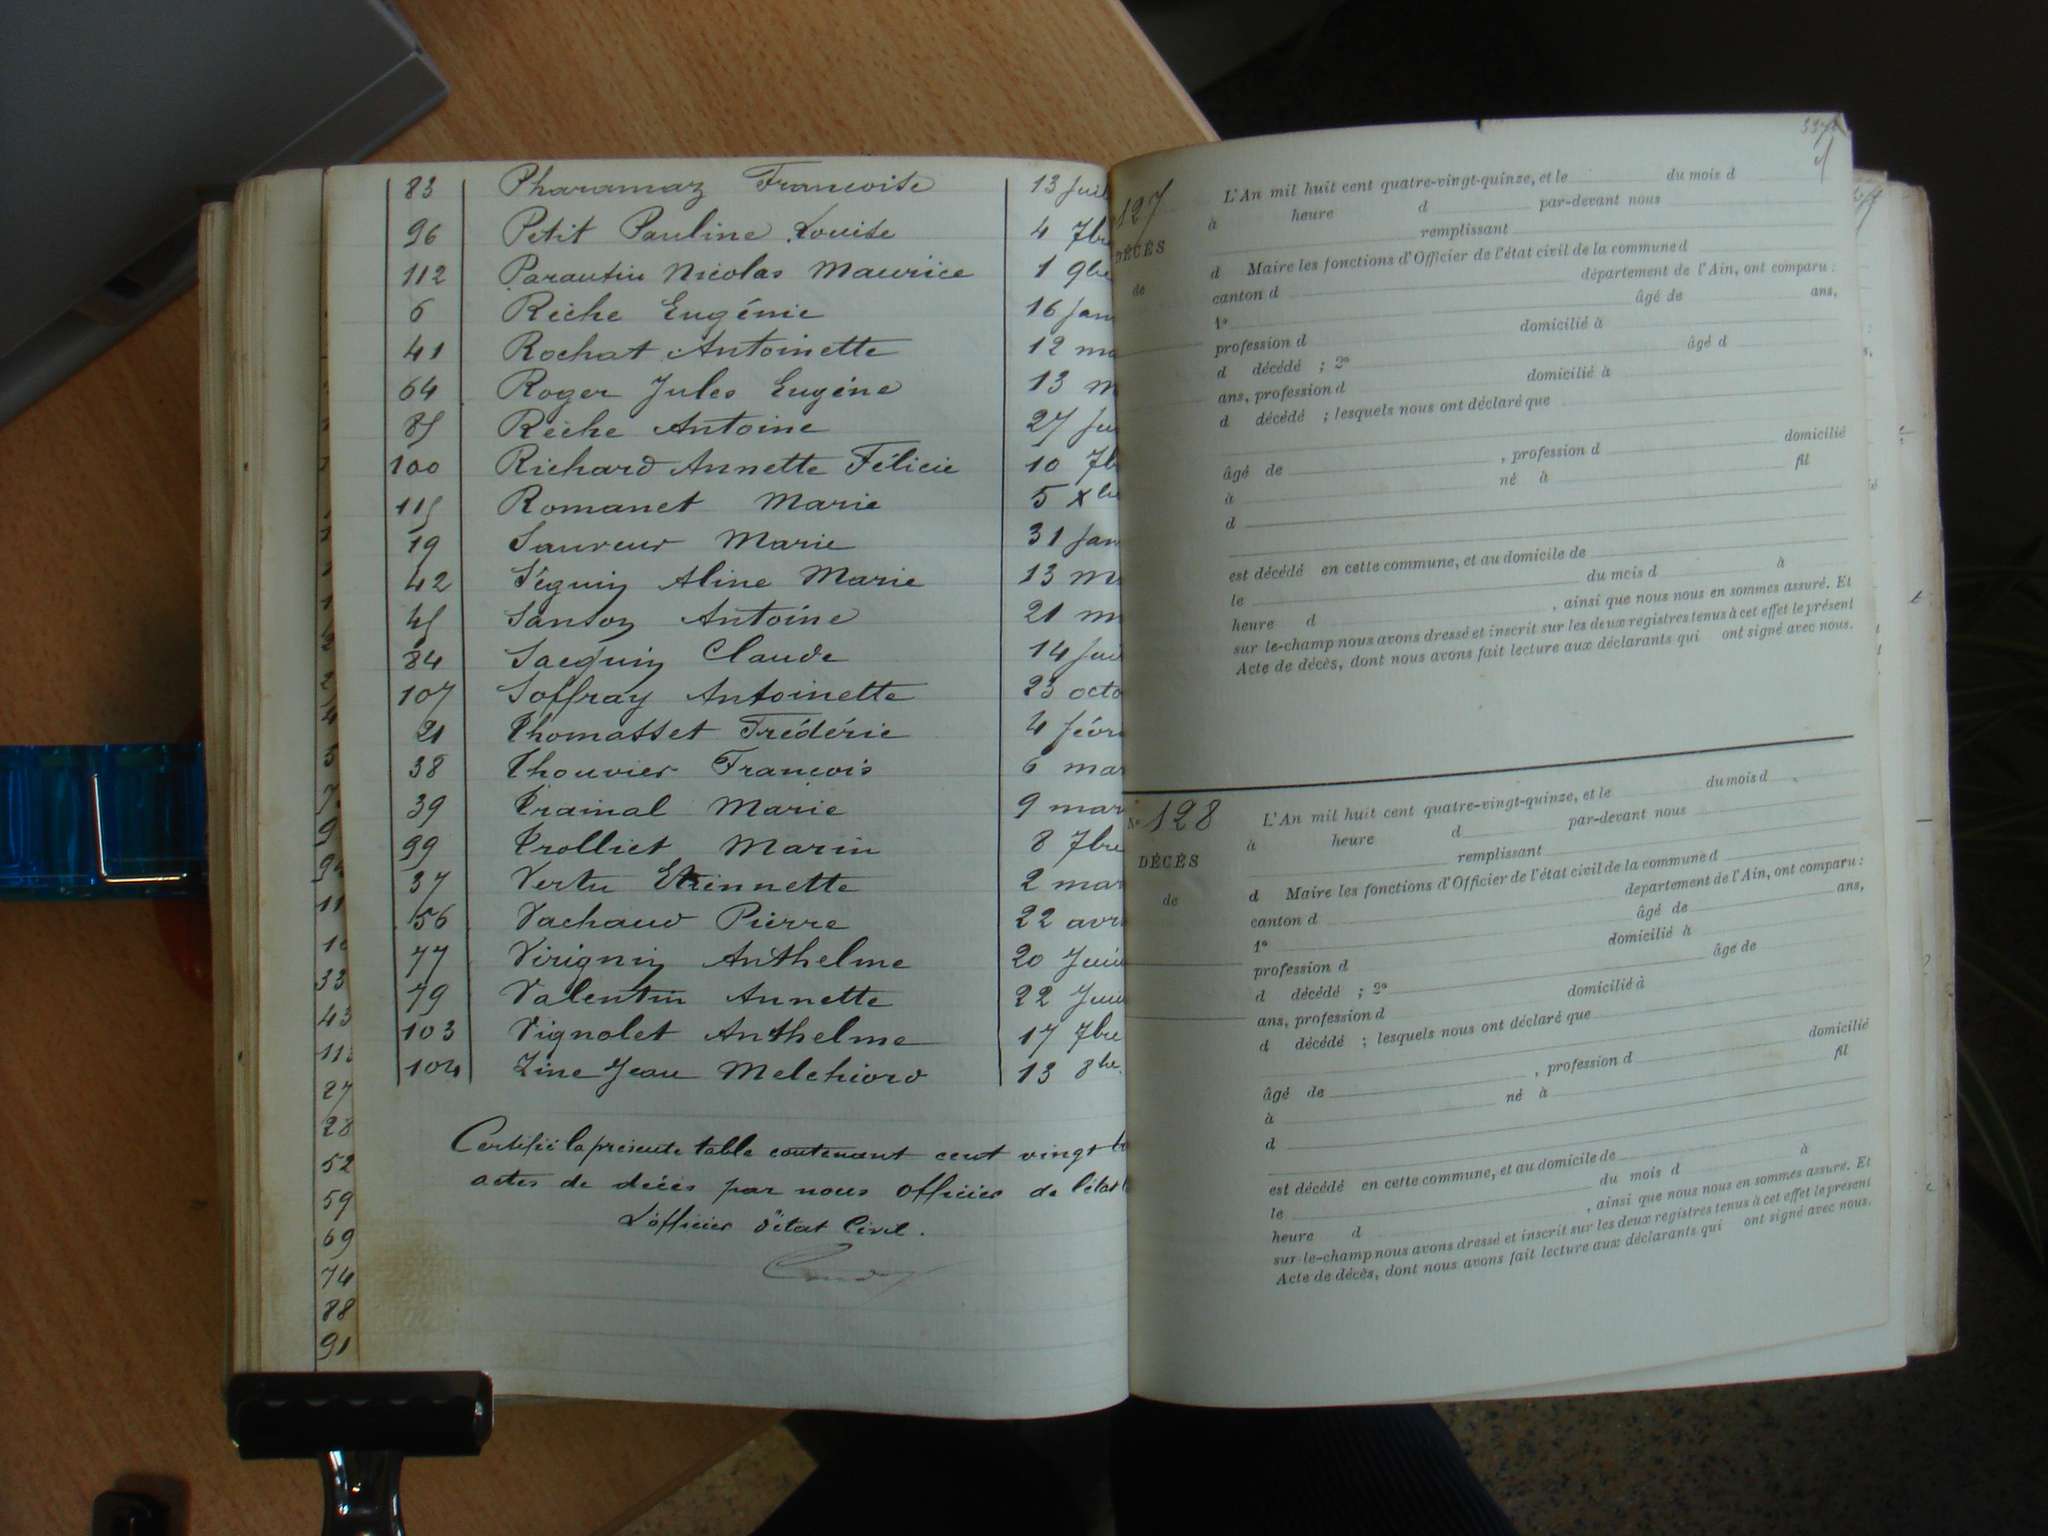 83 Pharamaz Francoise 13 Juil
96 Petit Pauline Louise 4 7bre
112 Parautin Nicolas Maurice 1 9bre
6 Rèche Eugénie 16 Jan
41 Rochat Antoinette 12 ma
64 Roger Jules Eugène 13 m
85 Rèche Antoine 27 Ju
100 Richard Annette Félicie 10 7b
115 Romanet Marie 5 Xbre
19 Sauveur Marie 31 Jan
42 Séguin Aline Marie 13 m
45 Sanson Antoine 21 m
84 Jacquin Claude 14 Jui
107 Soffray Antoinette 23 octo
21 Thomasset Frédéric 4 févr
38 Thouvier Francois 6 mar
39 Trainal Marie 9 mar
99 Trolliet Marin 8 7bre
37 Vertu Etiennette 2 mar
56 Vachaud Pierre 22 avr
77 Virignin Anthelme 20 Juin
79 Valentin Annette 22 Juin
103 Vignolet Anthelme 17 7bre
104 Zine Jean Melchiord 13 8bre
Certifié la présente table contenant cent vingt
actes de décès par nous officier de l'état
L'officier d'état Civil.
43
27
28
52
59
69
74
88
91
127
DÉCÈS
de
L'An mil huit cent quatre-vingt-quinze, et le du mois d
à heure d par-devant nous
remplissant
d Maire les fonctions d'Officier de l'état civil de la commune d
canton d département de l'Ain, ont comparu :
1° âgé de ans,
profession d domicilié à
d décédé ; 2° âgé d
ans, profession d domicilié à
d décédé ; lesquels nous ont déclaré que
âgé de , profession d domicilié
à né à fil
d
est décédé en cette commune, et au domicile de
le du mois d à
heure d , ainsi que nous nous en sommes assuré. Et
sur le-champ nous avons dressé et inscrit sur les deux registres tenus à cet effet le présent
Acte de décès, dont nous avons fait lecture aux déclarants qui ont signé avec nous.
N° 128
DÉCÈS
de
L'An mil huit cent quatre-vingt-quinze, et le du mois d
à heure d par-devant nous
remplissant
d Maire les fonctions d'Officier de l'état civil de la commune d
canton d département de l'Ain, ont comparu :
1° âgé de ans,
profession d domicilié à
d décédé ; 2° âgé de
ans, profession d domicilié à
d décédé ; lesquels nous ont déclaré que
âgé de , profession d domicilié
à né à fil
d
est décédé en cette commune, et au domicile de
le du mois d à
heure d , ainsi que nous nous en sommes assuré. Et
sur-le-champ nous avons dressé et inscrit sur les deux registres tenus à cet effet le présent
Acte de décès, dont nous avons fait lecture aux déclarants qui ont signé avec nous.